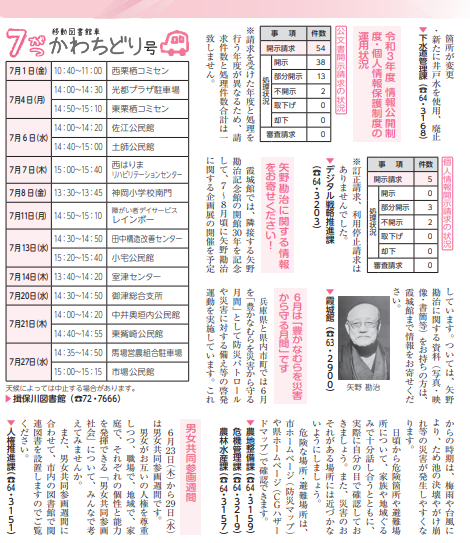 7がつ
移動図書館車
かわちどり号
7月1日(金) 10:40~11:00 西栗栖コミセン
7月4日(月) 14:00~14:30 光都プラザ駐車場
14:50~15:10 東栗栖コミセン
7月6日(水) 14:00~14:20 佐江公民館
14:40~15:00 土師公民館
7月7日(木) 15:00~15:40 西はりま
リハビリテーションセンター
7月8日(金) 13:30~13:45 神岡小学校南門
7月11日(月) 14:50~15:10 障がい者デイサービス
レインボー
7月13日(水) 14:30~14:50 田中構造改善センター
15:20~15:40 小宅公民館
7月14日(木) 13:40~14:20 室津センター
7月20日(水) 14:30~14:50 御津総合支所
7月21日(木) 14:00~14:20 中井奥垣内公民館
14:40~14:55 東觜崎公民館
7月27日(水) 14:35~14:50 馬場営農組合駐車場
15:00~15:15 市場公民館
天候によっては中止する場合があります。
▶揖保川図書館(☎72・7666)
箇所が変更
・新たに井戸水を使用、廃止
▼下水道管理課(☎64・3168)
令和3年度 情報公開制
度・個人情報保護制度の
運用状況
公文書開示請求の状況
事 項 件数
開示請求 54
処理状況
開示 38
部分開示 13
不開示 2
取下げ 0
却下 0
審査請求 0
※請求を受けた年度と処理を
行う年度が異なるため、請
求件数と処理件数合計は一
致しません。
個人情報開示請求の状況
事 項 件数
開示請求 5
処理状況
開示 0
部分開示 3
不開示 2
取下げ 0
却下 0
審査請求 0
※訂正請求、利用停止請求は
ありませんでした。
▼デジタル戦略推進課
(☎64・3203)
矢野勘治に関する情報
をお寄せください!
霞城館では、隣接する矢野
勘治記念館の開館30年を記念
して、7~8月頃に矢野勘治
に関する企画展の開催を予定
しています。ついては、矢野
勘治に関する資料(写真・映
像・書簡等)をお持ちの方は、
霞城館まで情報をお寄せくだ
さい。
▼霞城館(☎63・2900)
矢野 勘治
6月は「豊かなむらを災害
から守る月間」です
兵庫県と県内市町では6月
を「豊かなむらを災害から守る
月間」として防災パトロール
や災害に対する備え等の啓発
運動を実施しています。これ
からの時期は、梅雨や台風に
より、ため池の決壊やがけ崩
れ等の災害が発生しやすくな
ります。
日頃から危険箇所や避難場
所について、家族や地域ぐる
みで十分話し合うとともに、
実際に自分の目で確認してお
きましょう。また、災害のお
それがある場所には近づかな
いようにしましょう。
危険な場所、避難場所は、
市ホームページ(防災マップ)
や県ホームページ(CGハザー
ドマップ)で確認できます。
▼農地整備課(☎64・3159)
危機管理課(☎64・3219)
農林水産課(☎64・3157)
男女共同参画週間
6月23日(木)から29日(水)
は男女共同参画週間です。
男女がお互いの人権を尊重
しつつ、職場で、地域で、家
庭で、それぞれの個性と能力
を発揮できる「男女共同参画
社会」について、みんなで考
えてみませんか。
また、男女共同参画週間に
合わせて、市内の図書館で関
連図書を設置しますのでご覧
ください。
▼人権推進課(☎64・3151)